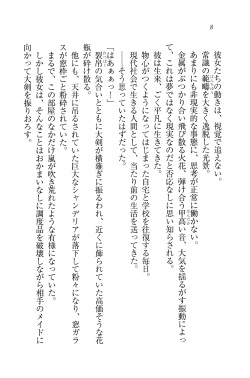 8
彼女たちの動きは、視覚で追えない。
常識の範疇を大きく逸脱した光景。
あまりにも非現実的な事態に、思考が正常に働かない。
金属がぶつかり合い飛び散る火花、弾け合う甲高い音、大気を揺るがす振動によっ
て、これは夢ではなく現実なのだと否応なしに思い知らされる。
彼は生来、ごく平凡に生きてきた。
物心がつくようになってはじまった自宅と学校を往復する毎日。
現代社会で生きる人間として、当たり前の生活を送ってきた。
――そう思っていたはずだった。
「はあぁぁっ！」
裂帛の気合いとともに大剣が横薙ぎに振るわれ、近くに飾られていた高価そうな花
瓶が砕け散る。
他にも、天井に吊るされていた巨大なシャンデリアが落下して粉々になり、窓ガラ
スが窓枠ごと粉砕されていた。
まるで、この部屋のなかだけ嵐が吹き荒れたような有様になっていた。
しかし彼女は、そんなことはおかまいなしに調度品を破壊しながら相手のメイドに
向かって大剣を振りおろす。